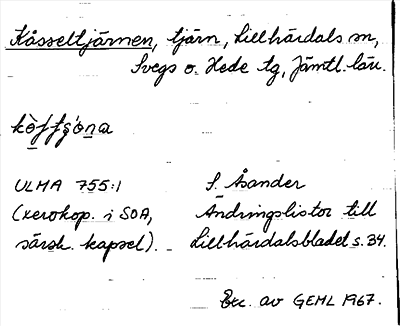 Kåsseltjärnen, tjärn, Lillhärdals sn,
Svegs o. Hede tg, Jämtl. län.
ULMA 755:1 S. Åsander
(xerokop. i SOA, Ändringslistor till
särsk. kapsel). Lillhärdalsbladet s. 34.
Exc. av GEHL 1967.